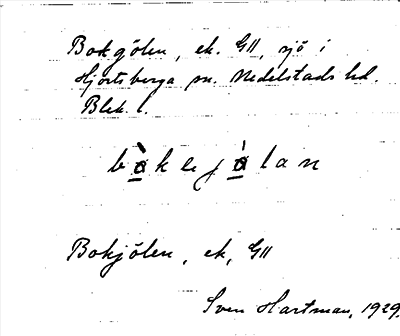 Bokgölen, ek. G11, sjö i
Hjortsberga sn. Medelstads hd.
Blek. l.
bòkejòlan
Bokjölen, ek, G11
Sven Hartman, 1929.